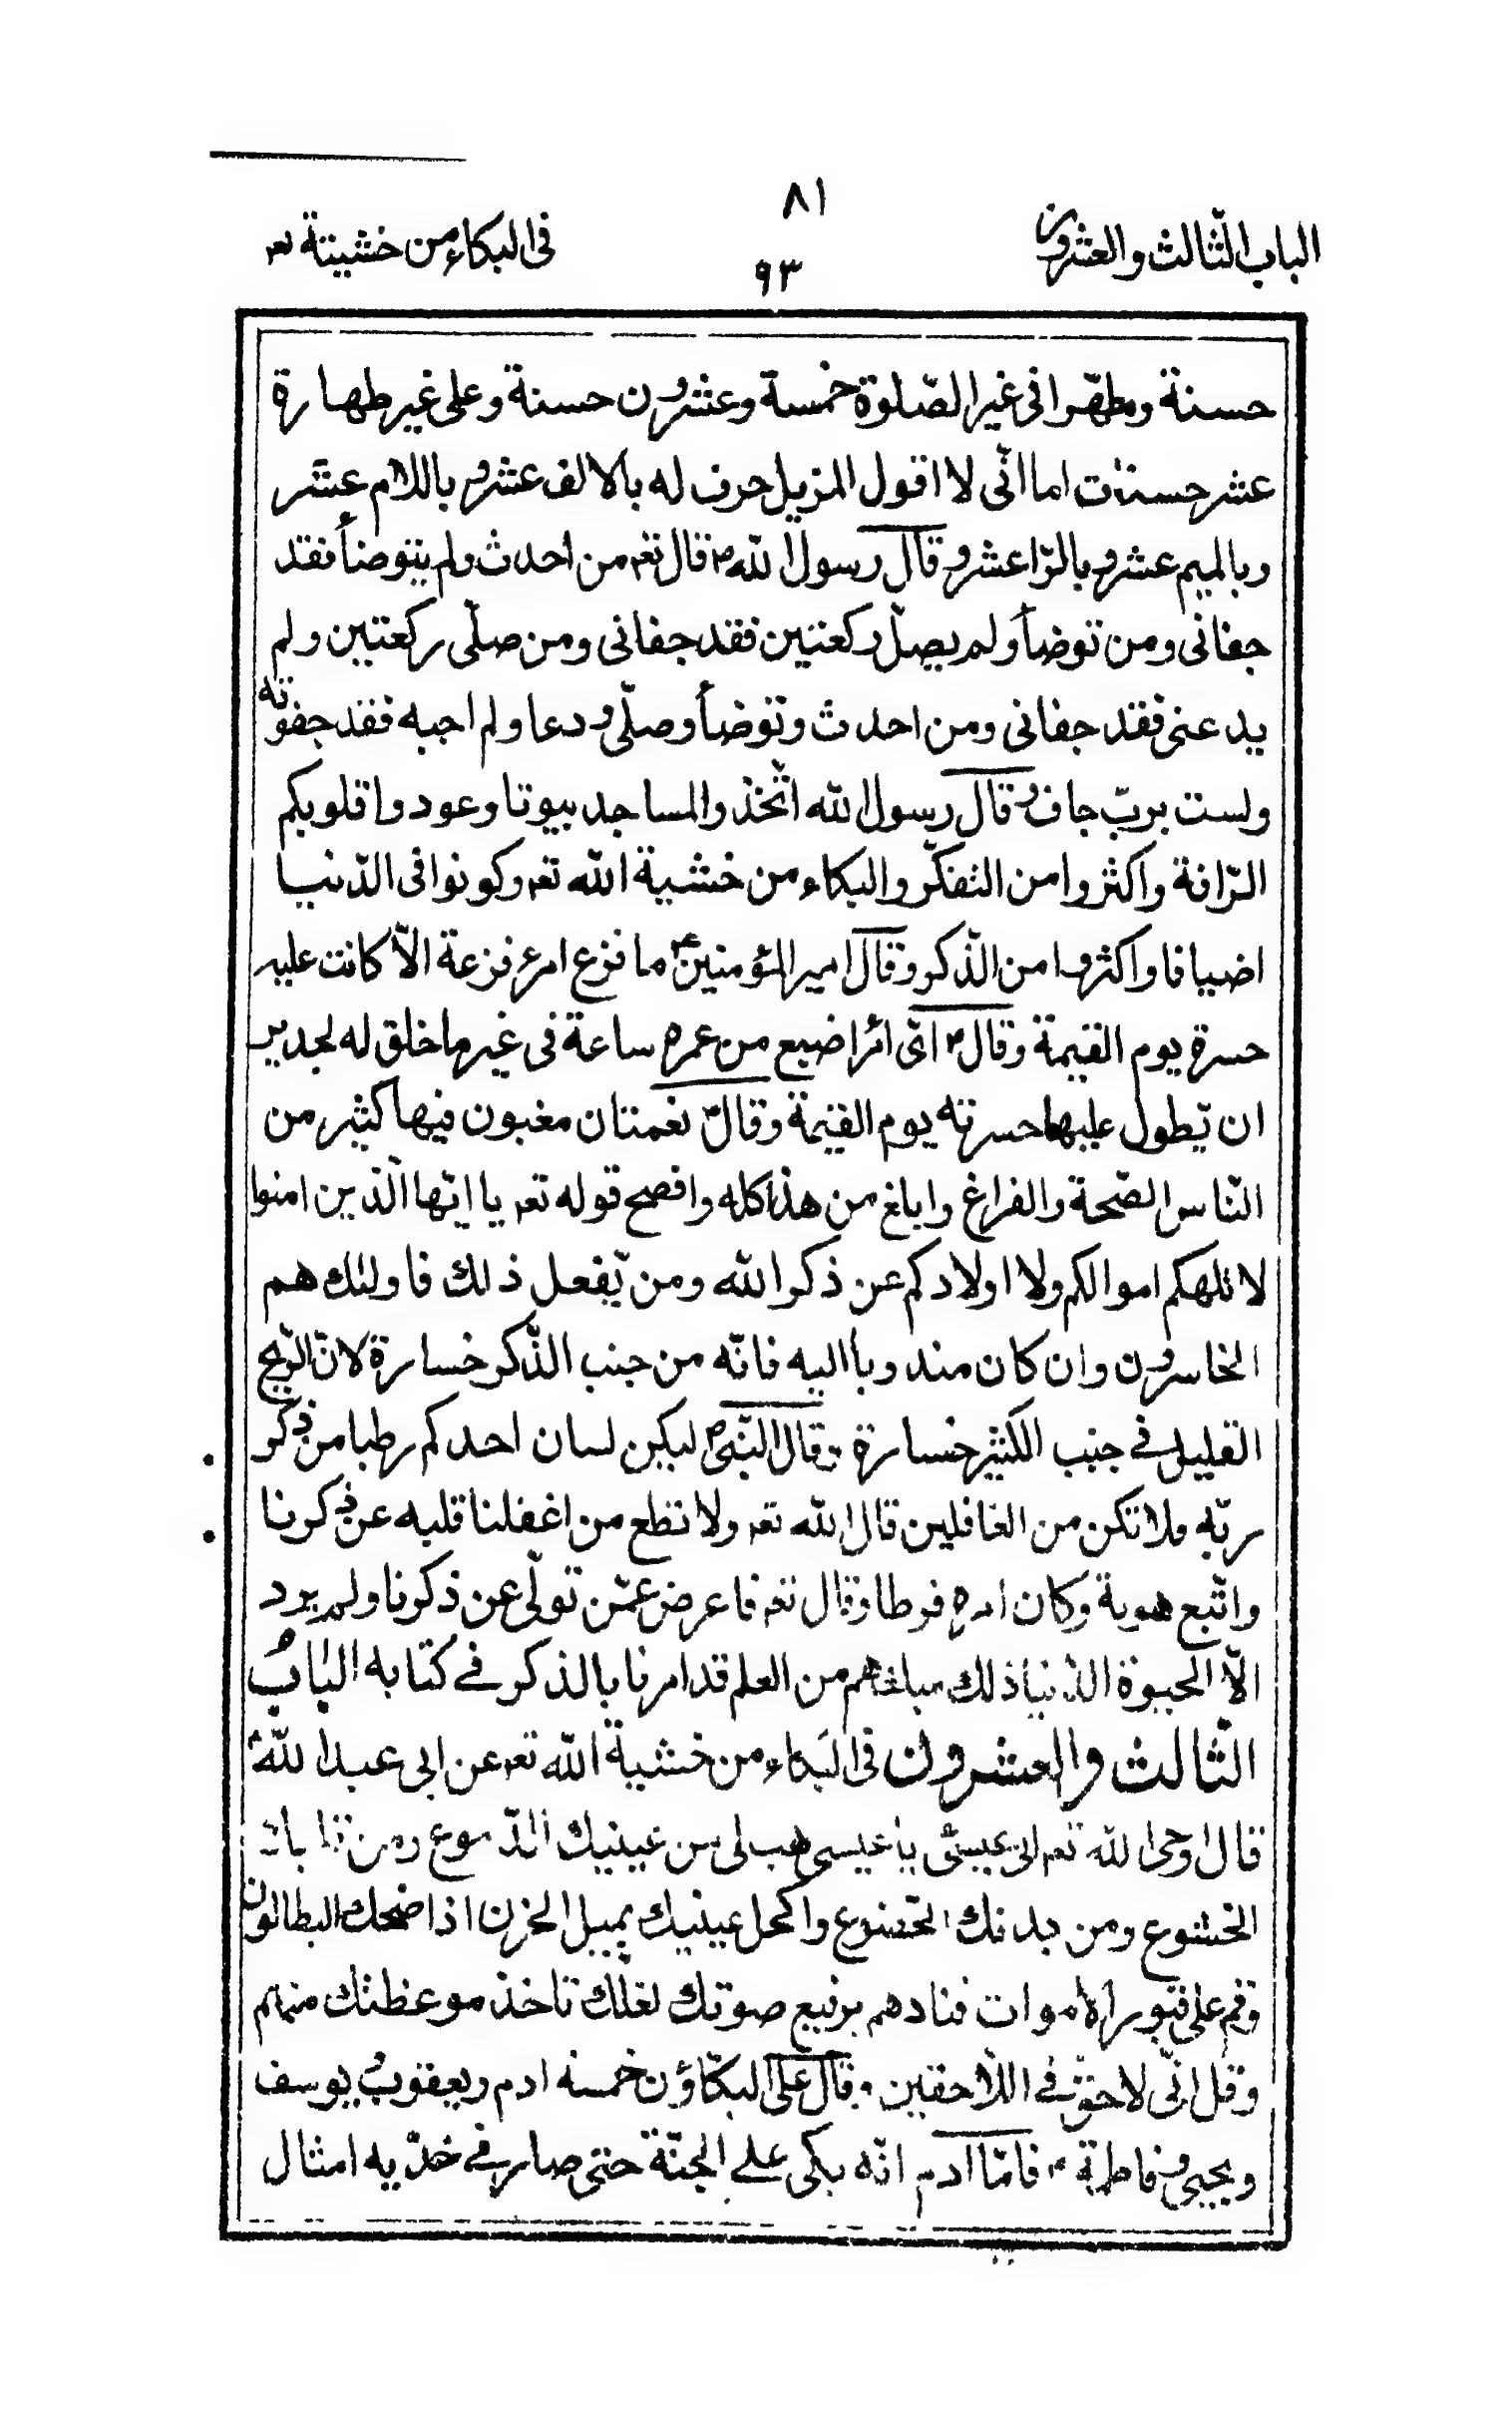 الباب الثّالث والعشرون
٨١
٩٣
فى البكاء من خشيتة تعہ
حسنة ومطهّرا فى غير الصّلوة خمسة وعشرون حسنة وعلى غير طهارة
عشر حسنات اما انّى لا اقول المر بل حرف له بالالف عشر و باللام عشر
وبالميم عشر و بالرّا عشر و قال رسول اللّه ص قال تعہ من احدث ولم يتوضأ فقد
جفانى ومن توضأ ولم يصلّ ركعتين فقد جفانى ومن صلّى ركعتين ولم
يدعنى فقد جفانى ومن احدث وتوضأ وصلّى و دعا ولم اجبه فقد جفوته
ولست بربّ جاف و قال رسول اللّه اتّخذوا المساجد بيوتا وعودوا قلوبكم
الرّافة واكثروا من التفكّر والبكاء من خشية اللّه تعہ وكونوا فى الدّنيا
اضيافا واكثروا من الذّكر وقال امير المؤمنين ع ما فزع امرء فزعة الّا كانت عليه
حسرة يوم القيمة وقال ع اىّ امرء اضيع من عمره ساعة فى غير ما خلق له لجدير
ان يّطول عليها حسرته يوم القيمة وقال ص نعمتان مغبون فيها كثير من
النّاس الصّحة والفراغ وابلغ من هذا كله وافصح قوله تعہ يا ايّها الّذين امنوا
لا تلهكم اموالكم ولا اولادكم عن ذكر اللّه ومن يّفعل ذلك فاولئك هم
الخاسرون وان كان مندوبا اليه فانّه من جنب الذّكر خسارة لانّ الرّبح
القليل فى جنب الكثير خسارة وقال النّبى ص ليكن لسان احدكم رطبا من ذكر
ربّه ولا تكن من الغافلين قال اللّه تعہ ولا تطع من اغفلنا قلبه عن ذكرنا
واتّبع هويه وكان امره فرطا وقال تعہ فاعرض عمّن تولّى عن ذكرنا ولم يرد
الّا الحيوة الدّنيا ذلك مبلغهم من العلم قد امرنا بالذكر فى كتابه البٰابُ
الثّالث والعشرون فى البكاء من خشية اللّه تعہ عن ابى عبد اللّه ع
قال اوحى اللّه تعہ الى عيسى يا عيسى هب لى من عينيك الدّموع ومن قلبك
الخشوع ومن بدنك الخضوع واكحل عينيك بميل الحزن اذا ضحك البطالون
وقم على قبور الاموات فنادهم برفيع صوتك لعلّك تاخذ موعظتك منهم
وقل انّى لاحق فى اللّاحقين و قال علىّ البكّاؤن خمسه ادم ويعقوب يوسف
ويحيى وفاطمة ع فامّا ادم انّه بكى على الجنّة حتى صار فى خدّيه امثال